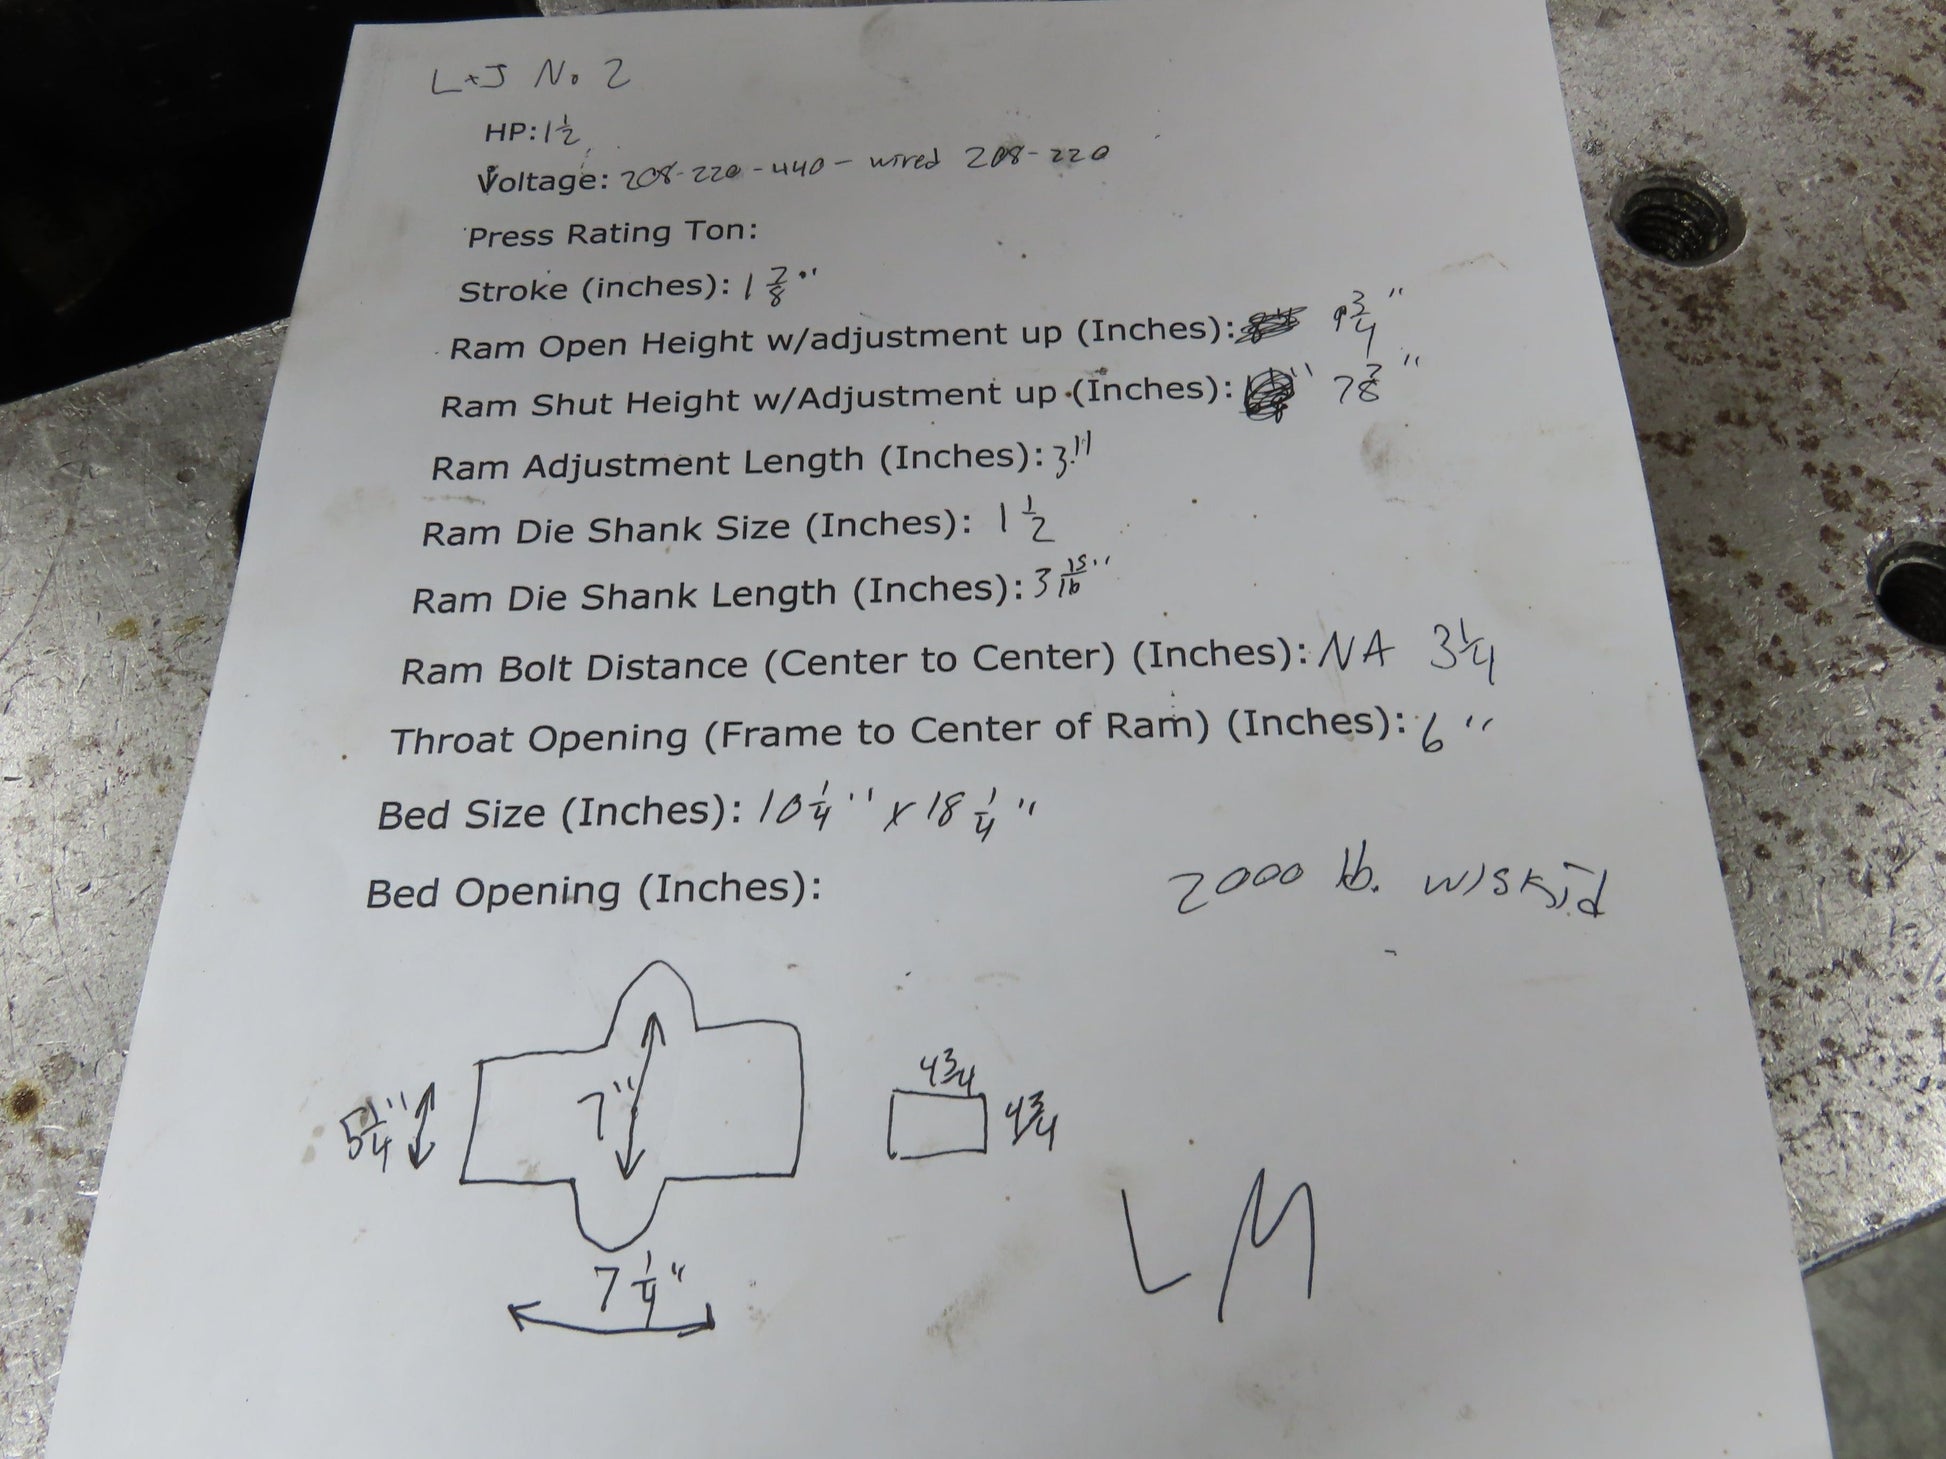 L+J No 2
HP: 1 1/2
Voltage: 208-220-440 - wired 208-220
Press Rating Ton:
Stroke (inches): 1 7/8"
Ram Open Height w/adjustment up (Inches): 9 3/4"
Ram Shut Height w/Adjustment up (Inches): 7 7/8"
Ram Adjustment Length (Inches): 3"
Ram Die Shank Size (Inches): 1 1/2
Ram Die Shank Length (Inches): 3 15/16"
Ram Bolt Distance (Center to Center) (Inches): NA 3 1/4
Throat Opening (Frame to Center of Ram) (Inches): 6"
Bed Size (Inches): 10 1/4" x 18 1/4"
Bed Opening (Inches):
2000 lb. w/skid
5 1/4"
7"
4 3/4
4 3/4
7 1/4"
LM